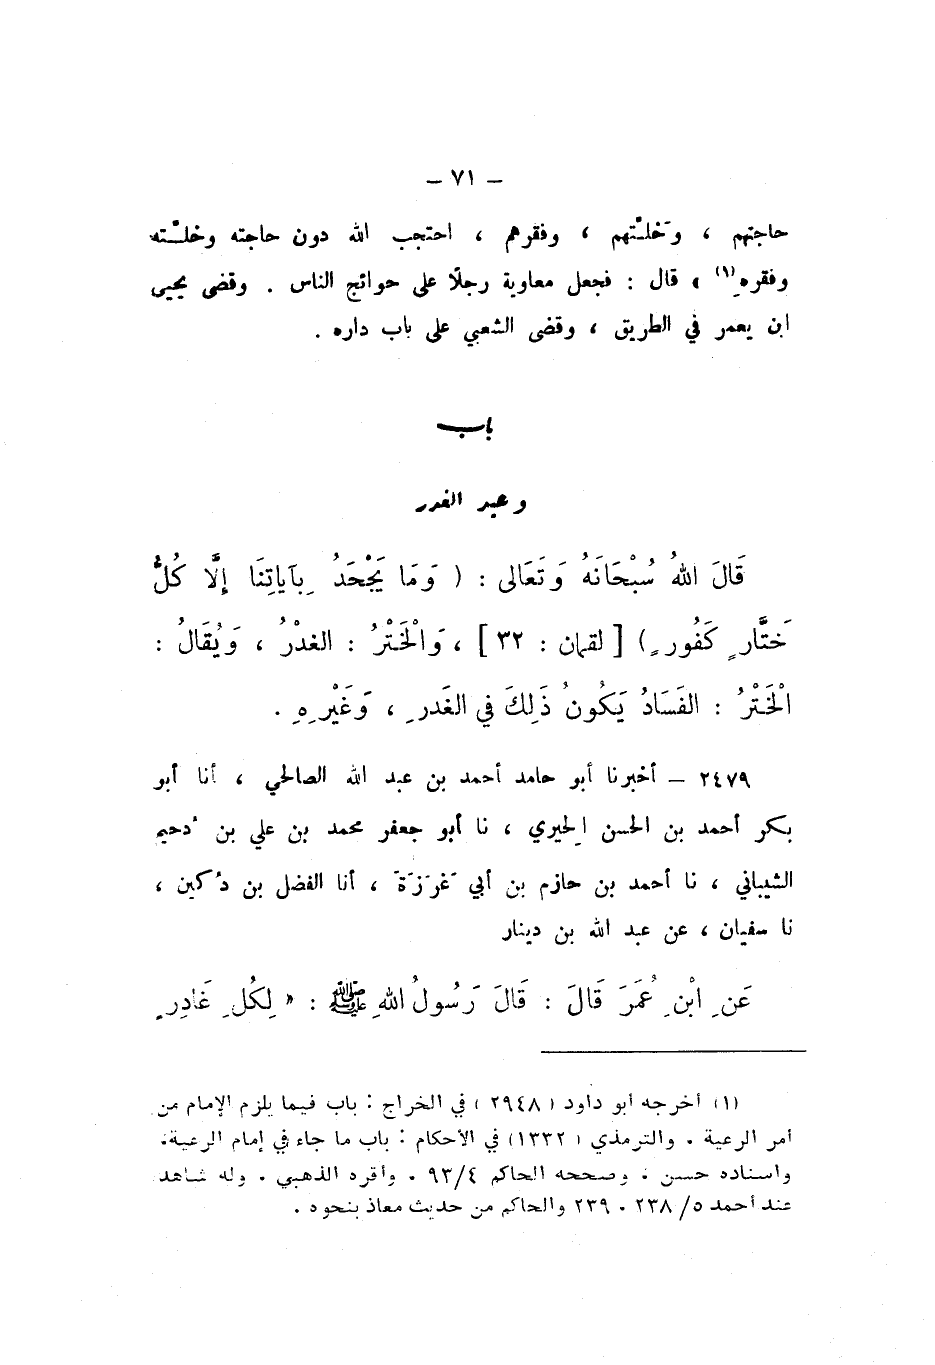 – ٧١ –
حاجتهم ، وَخلَّتهم ، وفقرهم ، احتجب الله دون حاجته وخلَّته
وفقرِه(١) » قال : فجعل معاوية رجلًا على حوائج الناس . وقضى يحيى
ابن يعمر في الطريق ، وقضى الشعبي على باب داره .
باب
وعيد الغدر
قَالَ اللهُ سُبْحَانَهُ وَتَعَالى : ( وَمَا يَجْحَدُ بِآيَاتِنَا إِلَّا كُلُّ
خَتَّارٍ كَفُورٍ ) [ لقمان : ٣٢ ] ، وَالْخَتْرُ : الغدْرُ ، وَيُقَالُ :
الْخَتْرُ : الفَسَادُ يَكُونُ ذَلِكَ في الغَدرِ ، وَغَيْرِهِ .
٢٤٧٩ – أخبرنا أبو حامد أحمد بن عبد الله الصالحي ، أنا أبو
بكر أحمد بن الحسن الحِيري ، نا أبو جعفر محمد بن علي بن دُحيم
الشيباني ، نا أحمد بن حازم بن أبي غَرَزَةَ ، أنا الفضل بن دُكين ،
نا سفيان ، عن عبد الله بن دينار
عَنِ ابْنِ عُمَرَ قَالَ : قَالَ رَسُولُ اللهِ ﷺ : « لِكُلِ غَادِرٍ
(١) أخرجه أبو داود ( ٢٩٤٨ ) في الخراج : باب فيما يلزم الإمام من
أمر الرعية . والترمذي ( ١٣٣٢) في الأحكام : باب ما جاء في إمام الرعية،
واسناده حسن ، وصححه الحاكم ٩٣/٤ . وأقره الذهبي . وله شاهد
عند أحمد ٥/ ٢٣٨ . ٢٣٩ والحاكم من حديث معاذ بنحوه .